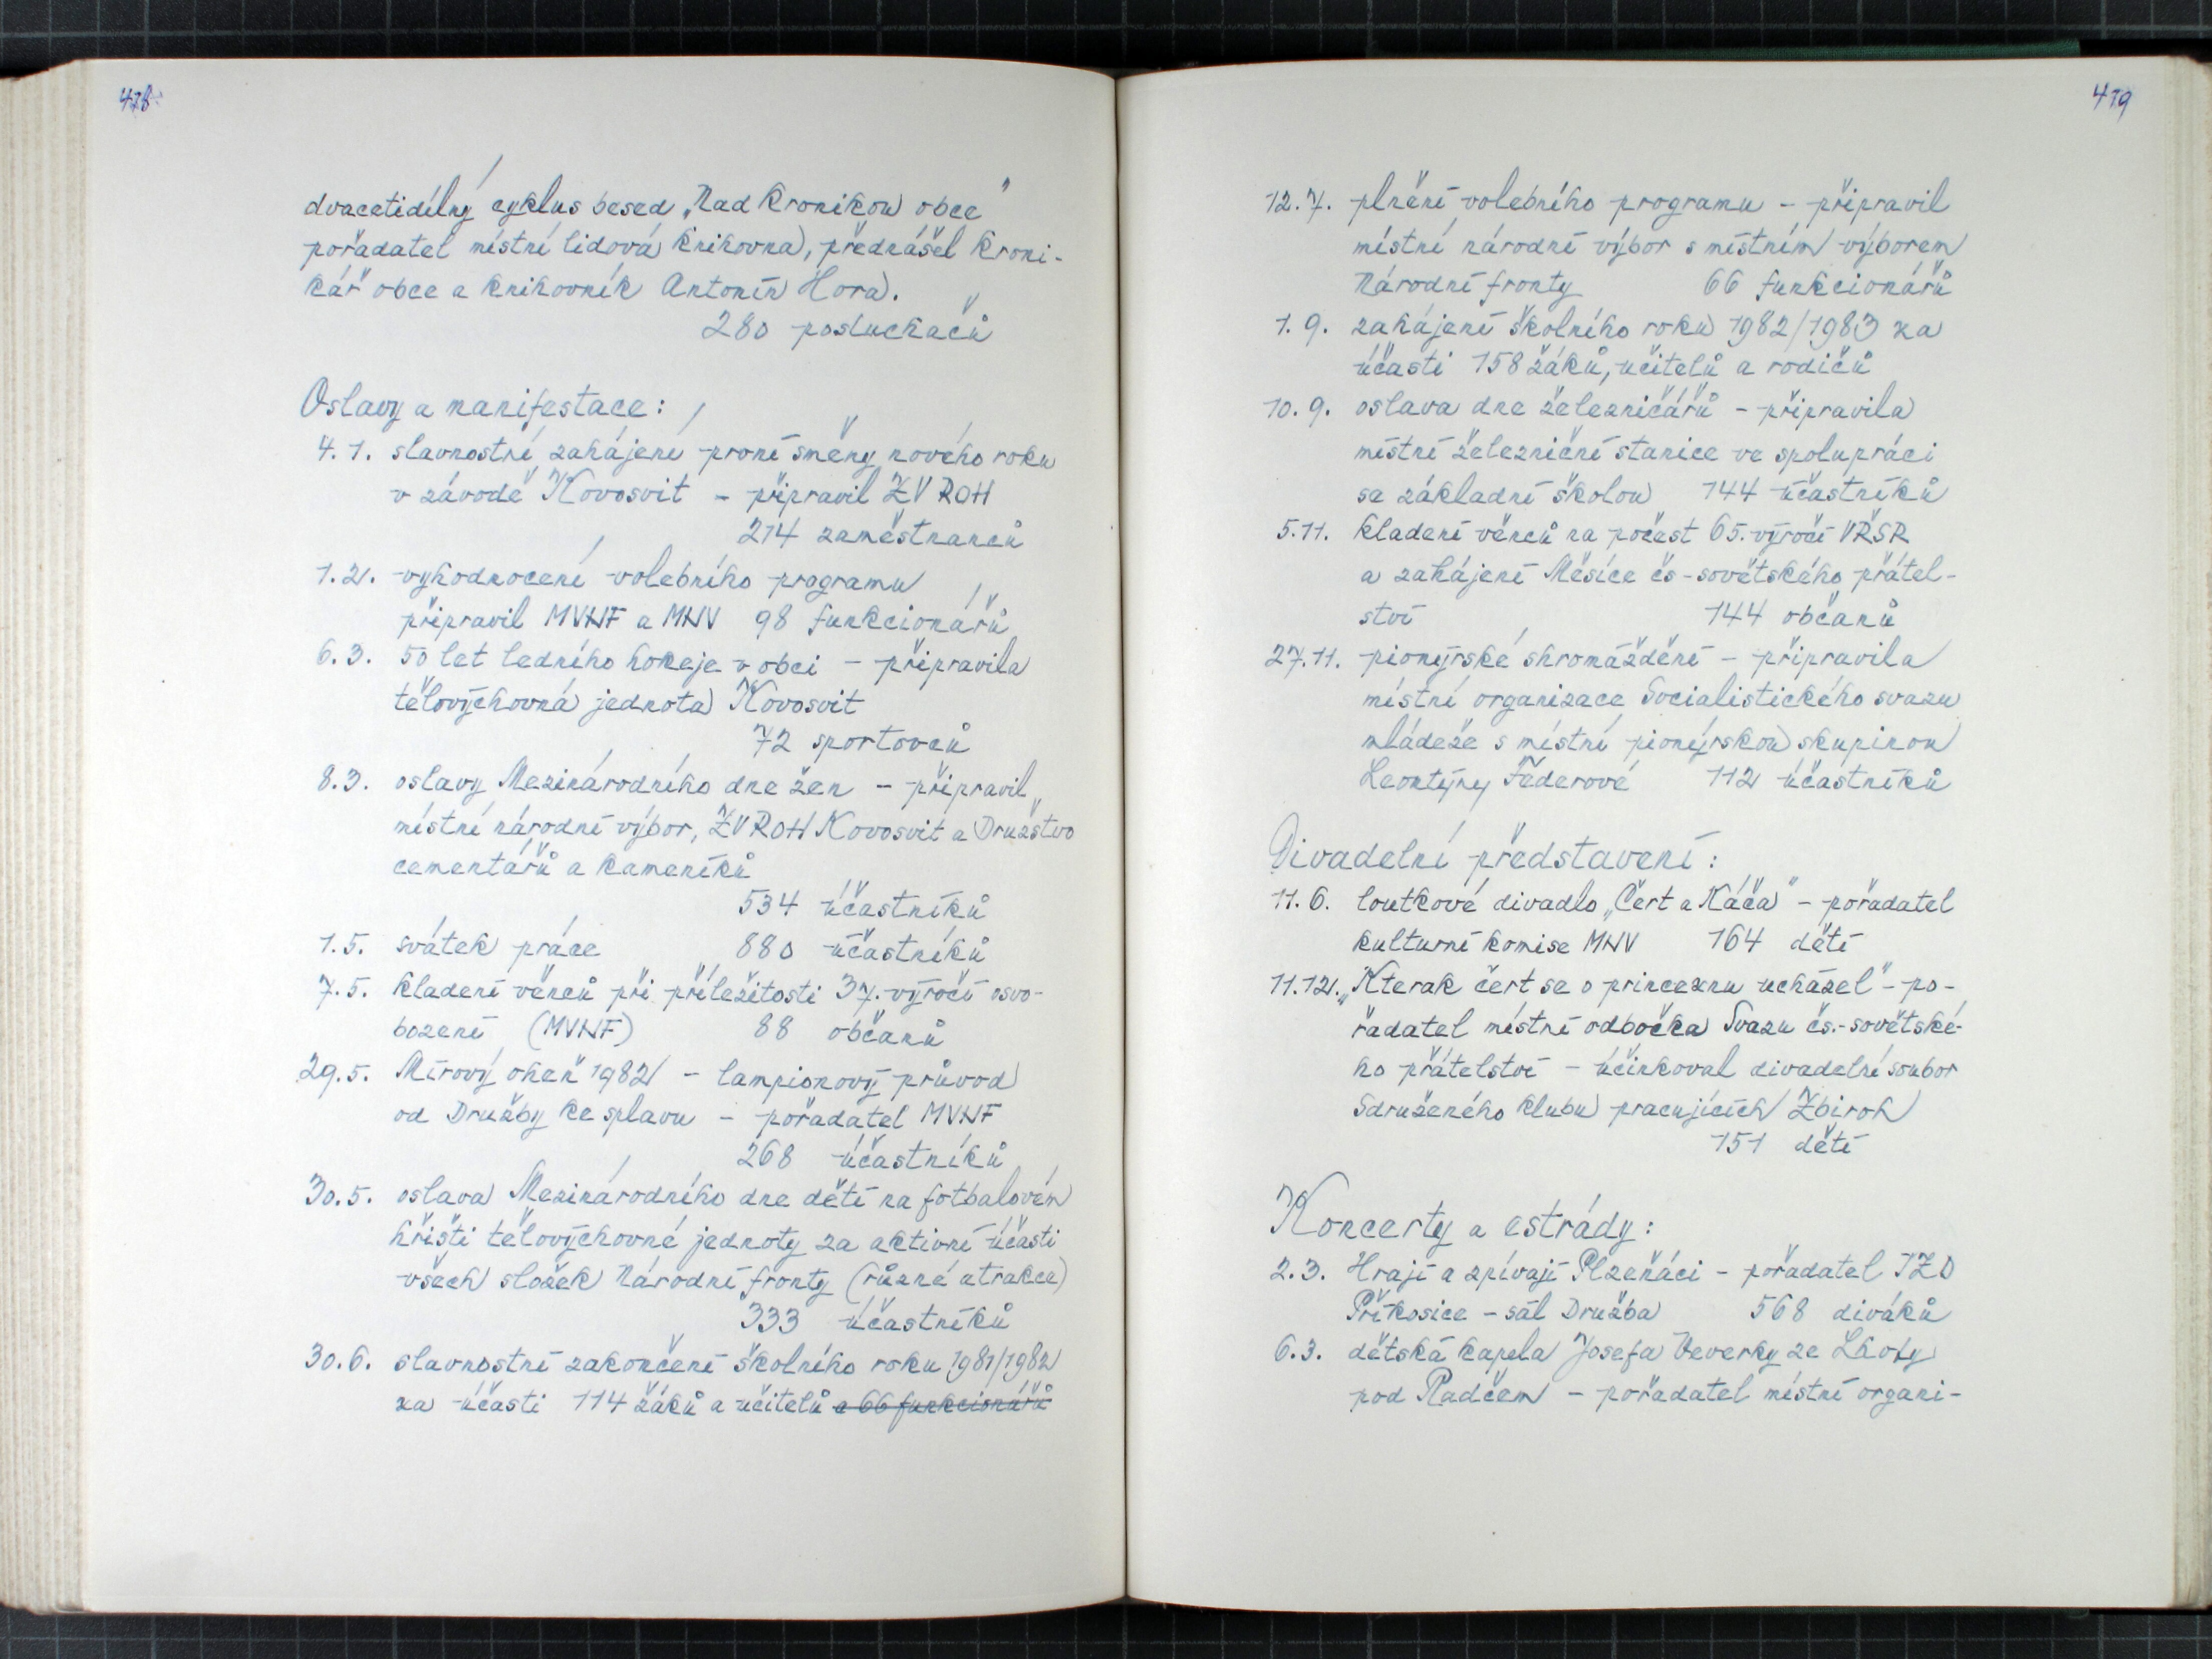 478
dvacetidílný cyklus besed „Nad kronikou obce"
pořadatel místní lidová knihovna, přednášel kroni-
kář obce a knihovník Antonín Hora.
280 posluchačů
Oslavy a manifestace:
4.1. slavnostní zahájení první směny nového roku
v závodě Kovosvit - připravil ZV ROH
214 zaměstnanců
1.2. vyhodnocení volebního programu
připravil MVNF a MNV 98 funkcionářů
6.3. 50 let ledního hokeje v obci - připravila
tělovýchovná jednota Kovosvit
72 sportovců
8.3. oslavy Mezinárodního dne žen - připravil
místní národní výbor, ZV ROH Kovosvit a Družstvo
cementářů a kameníků
534 účastníků
1.5. svátek práce 880 účastníků
7.5. kladení věnců při příležitosti 37. výročí osvo-
bození (MVNF) 88 občanů
29.5. Mírový oheň 1982 - lampionový průvod
od Družby ke splavu - pořadatel MVNF
268 účastníků
30.5. oslava Mezinárodního dne dětí na fotbalovém
hřišti tělovýchovné jednoty za aktivní účasti
všech složek Národní fronty (různé atrakce)
333 účastníků
30.6. slavnostní zakončení školního roku 1981/1982
za účasti 114 žáků a učitelů a 66 funkcionářů
479
12.7. plnění volebního programu - připravil
místní národní výbor s místním výborem
Národní fronty 66 funkcionářů
1.9. zahájení školního roku 1982/1983 za
účasti 158 žáků, učitelů a rodičů
10.9. oslava dne železničářů - připravila
místní železniční stanice ve spolupráci
se základní školou 144 účastníků
5.11. kladení věnců na počest 65. výročí VŘSR
a zahájení Měsíce čs-sovětského přátel-
ství 144 občanů
27.11. pionýrské shromáždění - připravila
místní organizace Socialistického svazu
mládeže s místní pionýrskou skupinou
Leontýny Federové 112 účastníků
Divadelní představení:
11.6. loutkové divadlo „Čert a Káča" - pořadatel
kulturní komise MNV 164 dětí
11.12. „Kterak čert se o princeznu ucházel" - po-
řadatel místní odbočka Svazu čs.-sovětské-
ho přátelství - účinkoval divadelní soubor
Sdruženého klubu pracujících Zbiroh
151 dětí
Koncerty a estrády:
2.3. Hrají a zpívají Plzeňáci - pořadatel JZD
Příkosice - sál Družba 568 diváků
6.3. dětská kapela Josefa Veverky ze Lhoty
pod Radčem - pořadatel místní organi-